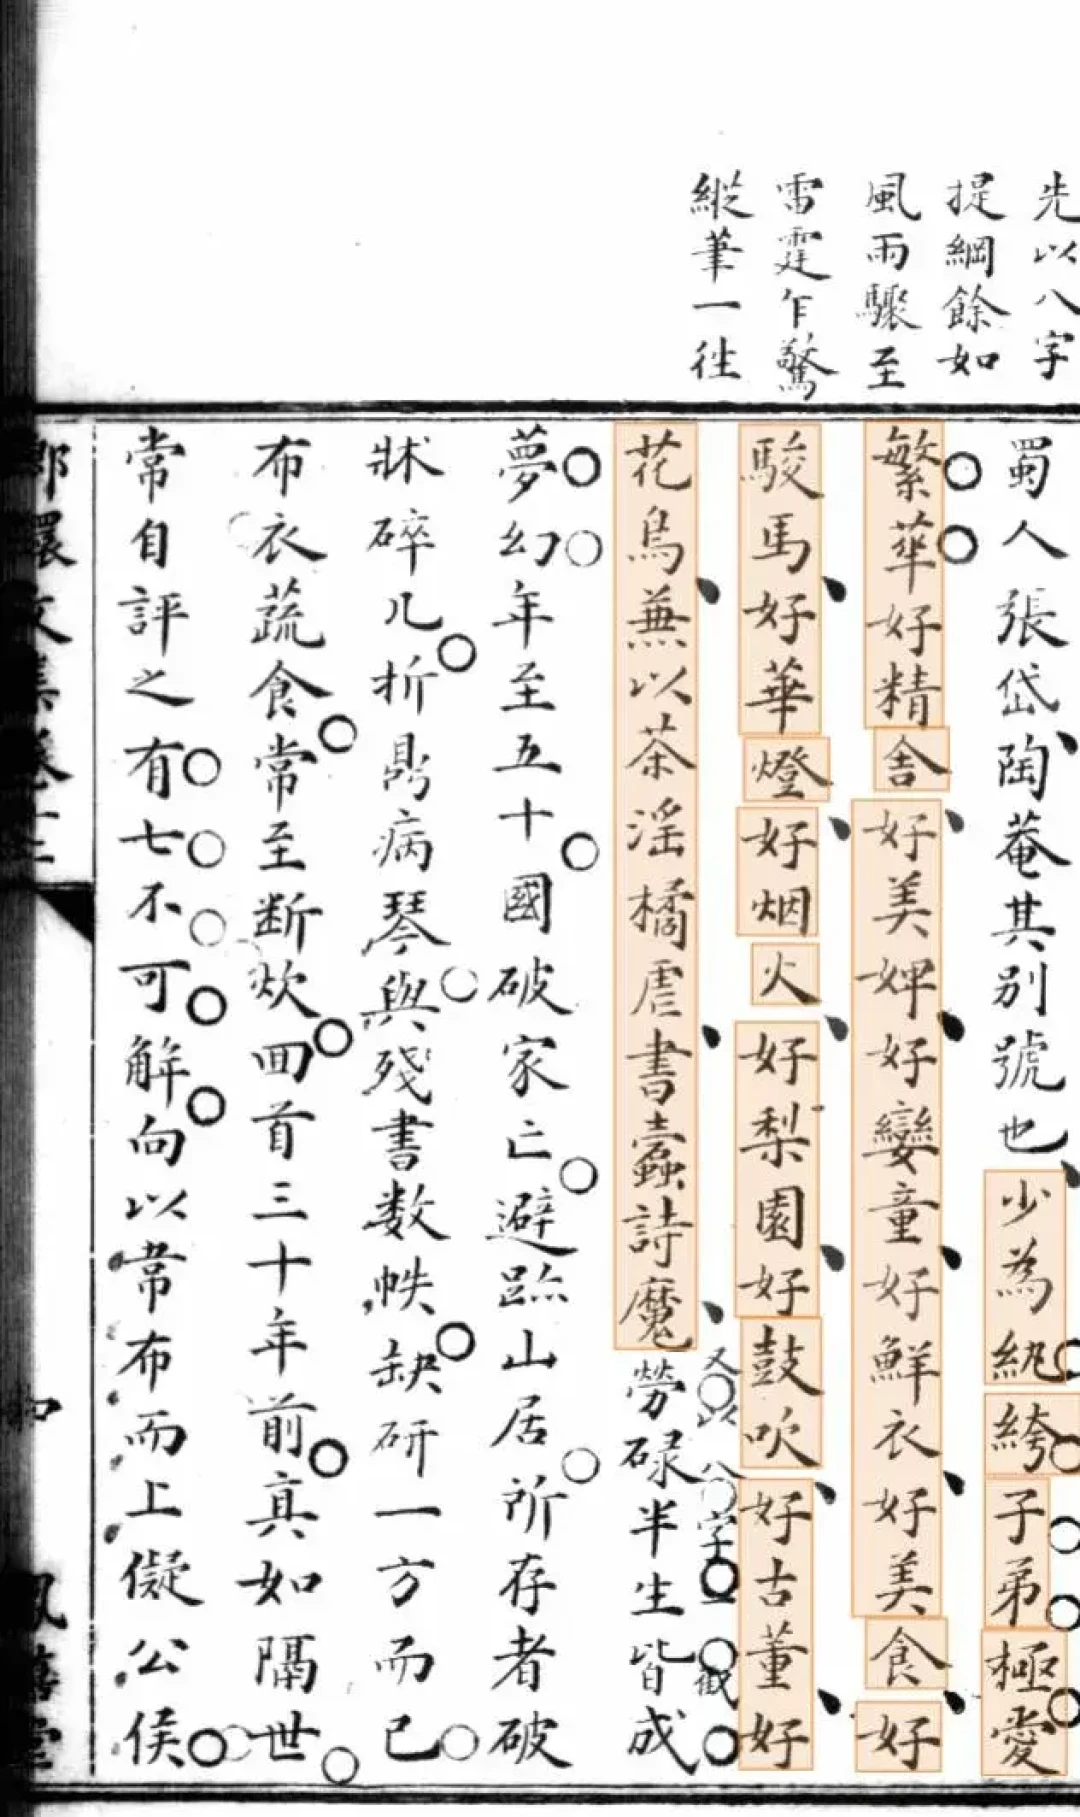 先以八字
提綱餘如
風雨驟至
雷霆乍驚
縱筆一往
蜀人張岱陶菴其別號也少為紈絝子弟極愛
繁華好精舍好美婢好孌童好鮮衣好美食好
駿馬好華燈好烟火好梨園好鼓吹好古董好
又以八字截
花鳥兼以茶淫橘虐書蠹詩魔勞碌半生皆成
夢幻年至五十國破家亡避跡山居所存者破
牀碎几折鼎病琴與殘書数帙缺研一方而已
布衣蔬食常至断炊回首三十年前真如隔世
常自評之有七不可解向以韋布而上儗公侯